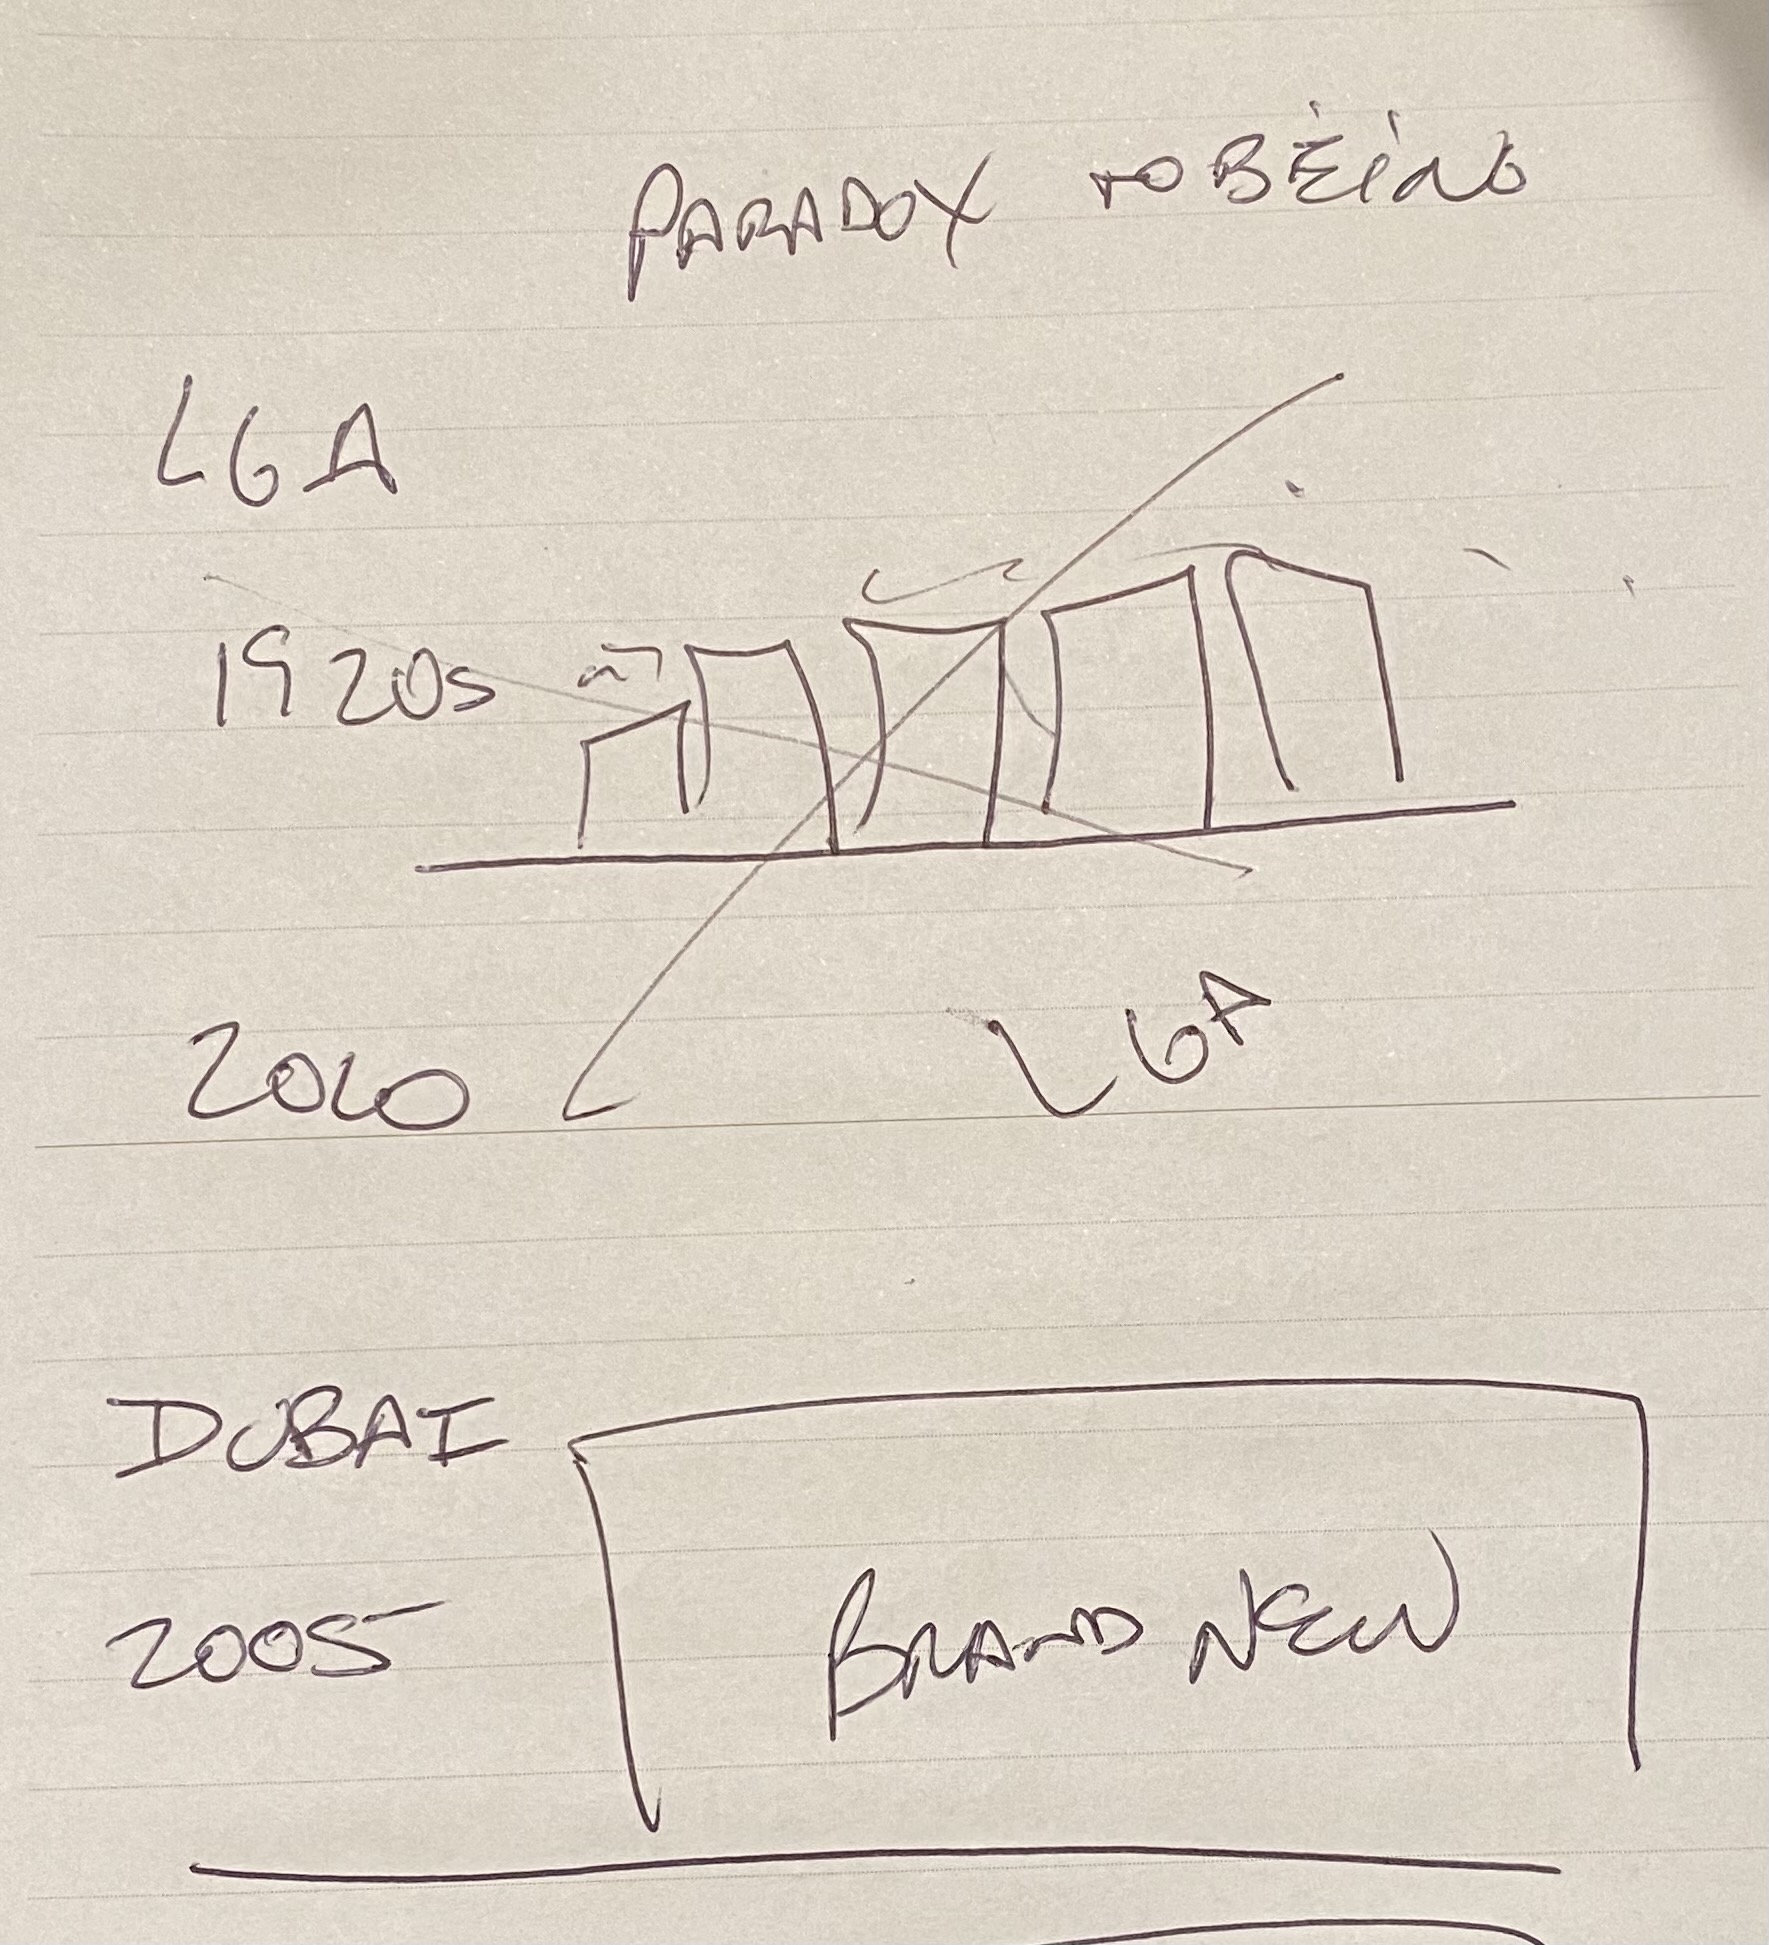 PARADOX TO BEING
LGA
1920s
2020
LGA
DUBAI
2005
BRAND NEW